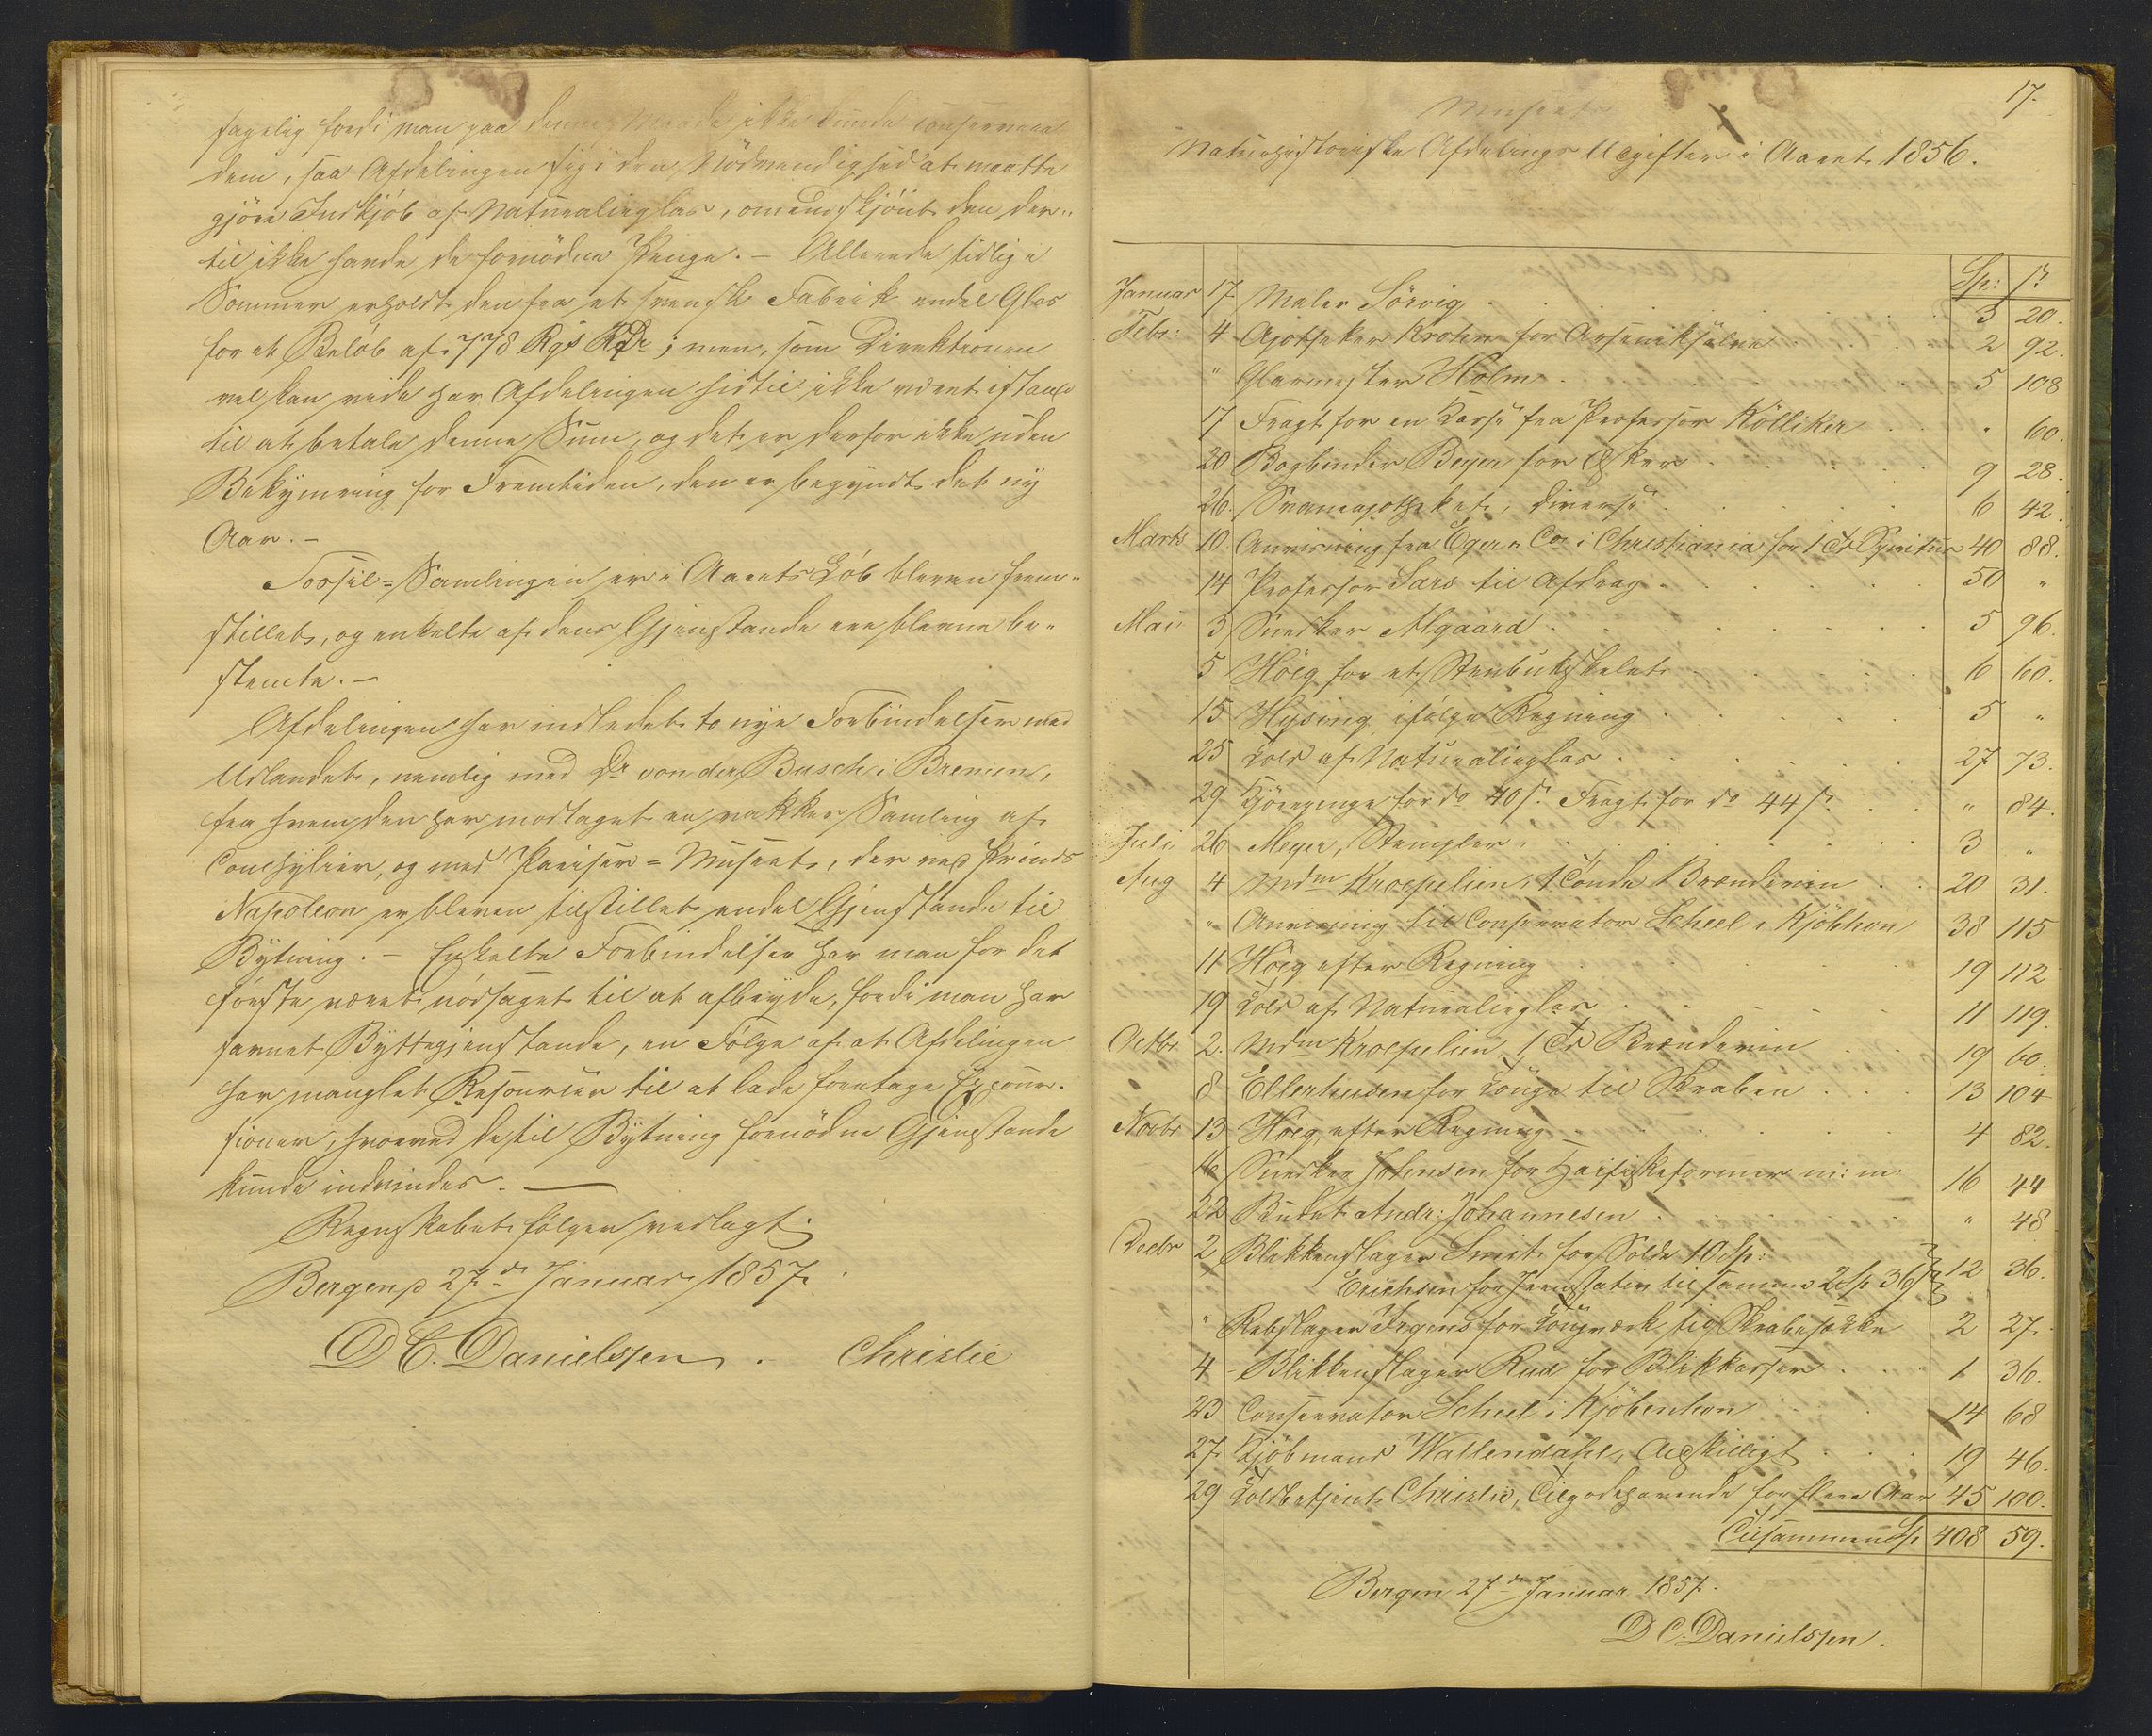 fagelig fordi man paa denne Maade ikke kunde conservere
dem, saa Afdelingen sig i den Nödvendighed at maatte
gjöre Indkjöb af Naturalieglas, omendskjönt den der-
til ikke havde de fornödne Penge. – Allerede tidlig i
Sommer erholdt den fra et svensk Fabrik endel Glas
for et Belöb af 778 Rgs RDr; men, som Direktionen
vel kan vide har Afdelingen hidtil ikke været istand
til at betale denne Sum, og det er derfor ikke uden
Bekymring for Fremtiden, den er begyndt det ny
Aar. –
Fossil=Samlingen er i Aarets Löb bleven frem-
stillet, og enkelte af dens Gjenstande ere blevne be-
stemte. –
Afdelingen har indledet to nye Forbindelser med
Udlandet, nemlig med Dr von der Busch i Bremen,
fra hvem den har modtaget en vakker Samling af
Conchylier, og med Pariser=Museet, der ved Prinds
Napoleon er bleven tilstillet endel Gjenstande til
Bytning. – Enkelte Forbindelser har man for det
förste været nödsaget til at afbryde, fordi man har
savnet Byttegjenstande, en Fölge af at Afdelingen
har manglet Resourcer til at lade foretage Excur-
sioner, hvorved de til Bytning fornödne Gjenstande
kunde indvindes. —
Regnskabet fölger vedlagt.
Bergen d 27de Januar 1857.
D C. Danielssen. Christie
17.
Museets
Naturhistoriske Afdelings Udgifter i Aaret 1856.
Sp: ſs
Januar 17 Maler Sörvig . . . 3 20.
Febr: 4 Apotheker Krohn for Arseniksæbe 2 92.
" Glarmester Holm . . . 5 108
17 Fragt for en Kasse fra Professor Kölliker . . " 60.
20 Bogbinder Beyer for Æsker . . . 9 28.
26. Svaneapotheket, diverse . . . 6 42.
Marts 10. Anvisning fra Eger & Co i Christiania for 1 Td Spiritus 40 88.
14 Professor Sars til Afdrag . . . 50 "
Mai 3 Snedker Algaard . . . 5 96.
5 Höeg for et Stenbukskelet . . . 6 60.
15 Hysing ifölge Regning . . . 5 "
25 Told af Naturalieglas . . . 27 73.
29 Kjörepenge for do 40 ſs. Fragt for do 44 ſs. . . " 84.
Juli 26 Meyer, Stempler . . . 3 "
Aug 4 Mdm Kroepelien, 1 Tönde Brændeviin . . 20 31.
" Anvisning til Conservator Scheel i Kjöbhvn 38 115
11 Höeg efter Regning . . . 19 112
19 Told af Naturalieglas . . . 11 119.
Octbr 2. Mdm Kroepelien 1 Td Brændeviin . . 19 60.
8 Ellerhusen for Touge til Skraben . . . 13 104
Novbr 13 Höeg efter Regning . . . 4 82.
16. Snedker Johnsen for Haifiskeformer m: m: 16 44
22 Budet Andr: Johannesen . . . " 48
Decbr 2 Blikkenslager Smit for Solde 10 Sp:
Erichsen for Jernstativ til samme 2 Sp 36 ſs } 12 36.
" Rebslager Irgens for Tougværk til Skrabesække 2 27.
4 – Blikkenslager Rud for Blikkasser . . . 1 36.
23 Conservator Scheel i Kjöbenhvn . . 14 68
27. Kjöbmand Wallendahl, Adskilligt . . . 19 46.
29 Toldbetjent Christie, Tilgodehavende for flere Aar 45 100.
Tilsammen Sp. 408 59.
Bergen 27de Januar 1857.
D C. Danielssen.